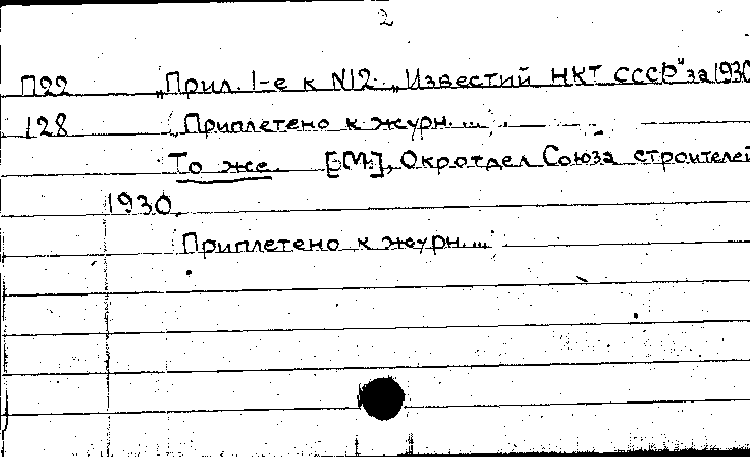 2
П22 „Прил. 1-е к N12 „Известий НКТ СССР" за 1930
128 „Приплетено к журн...."
То же. [М.], Окротдел Союза строителей
1930.
Приплетено к журн...."